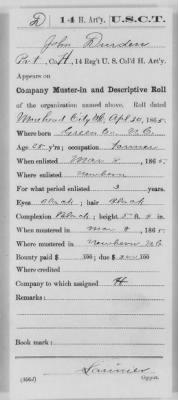 D | 14 H. Art'y. | U.S.C.T.
John Durden
Pvt, Co. H, 14 Reg't U. S. Col'd H. Art'y.
Appears on
Company Muster-in and Descriptive Roll
of the organization named above. Roll dated
Morehead City N.C. Apr. 30, 1865.
Where born Green Co N.C.
Age 25 y'rs; occupation Farmer
When enlisted Mar 8, 1865.
Where enlisted Newbern
For what period enlisted 3 years.
Eyes Black; hair Black
Complexion Black; height 5 ft. in.
When mustered in Mar 8, 1865.
Where mustered in Newbern N.C.
Bounty paid $ 100; due $ 100
Where credited
Company to which assigned H
Remarks:
Book mark:
Copyist.